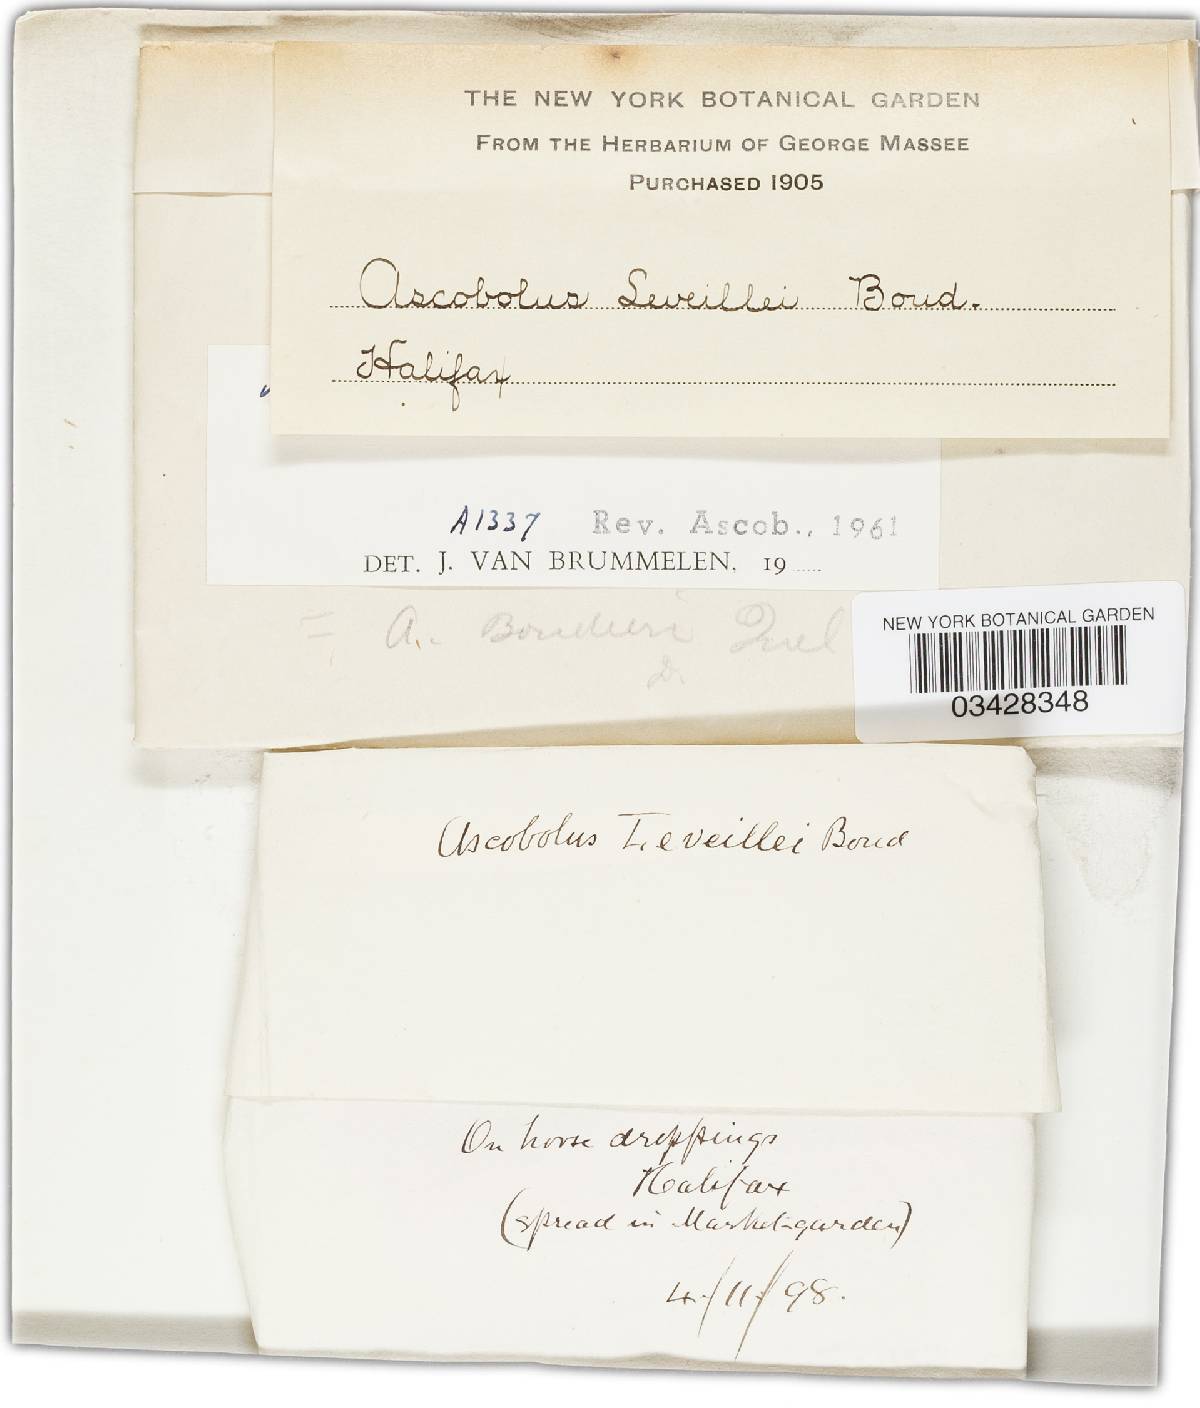 THE NEW YORK BOTANICAL GARDEN
FROM THE HERBARIUM OF GEORGE MASSEE
PURCHASED 1905
Ascobolus Leveillei Boud.
Halifax
A1337 Rev. Ascob., 1961
DET. J. VAN BRUMMELEN, 19......
= A. Boudieri Quel
NEW YORK BOTANICAL GARDEN
03428348
Ascobolus Leveillei Boud
On horse droppings
Halifax
(spread in Market-garden)
4/11/98.